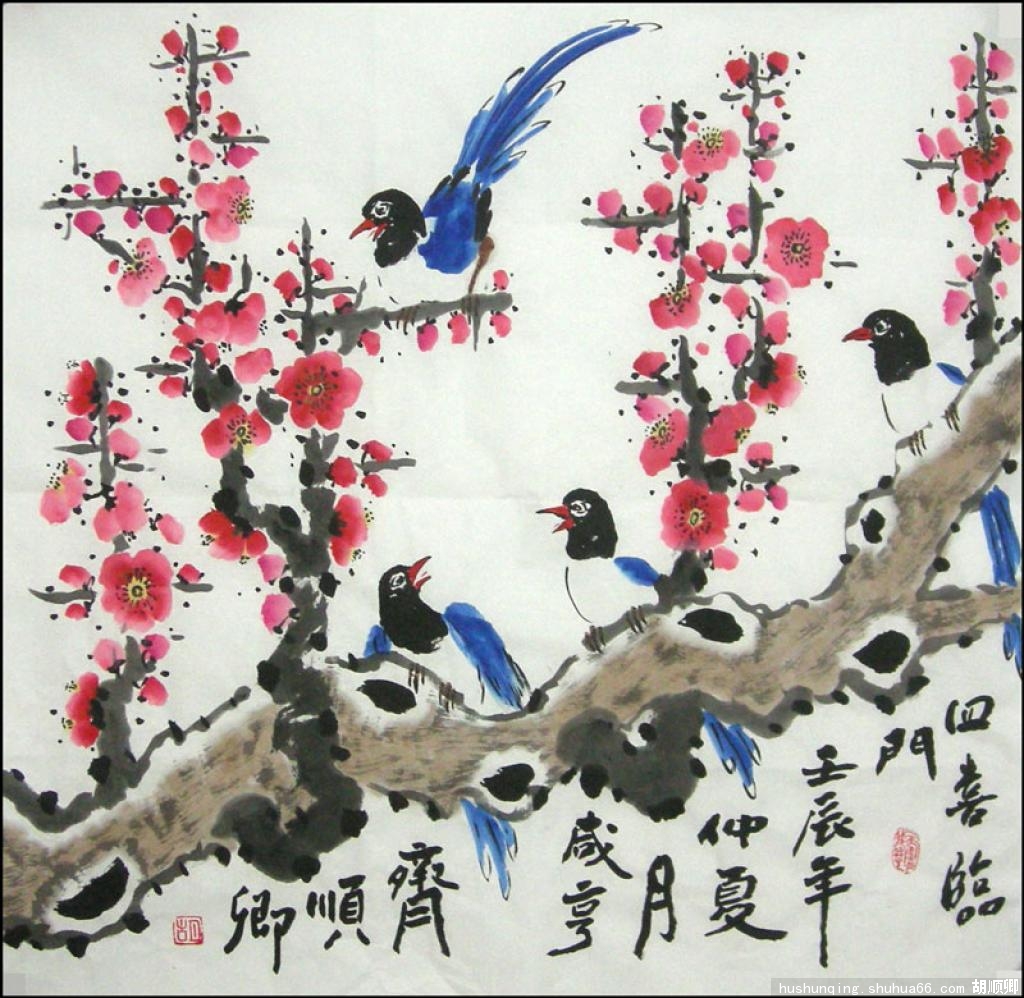 四喜臨
門
壬辰年
仲夏
月
咸亨
齊
順
卿
胡
hushunqing.shuhua66.com 胡顺卿